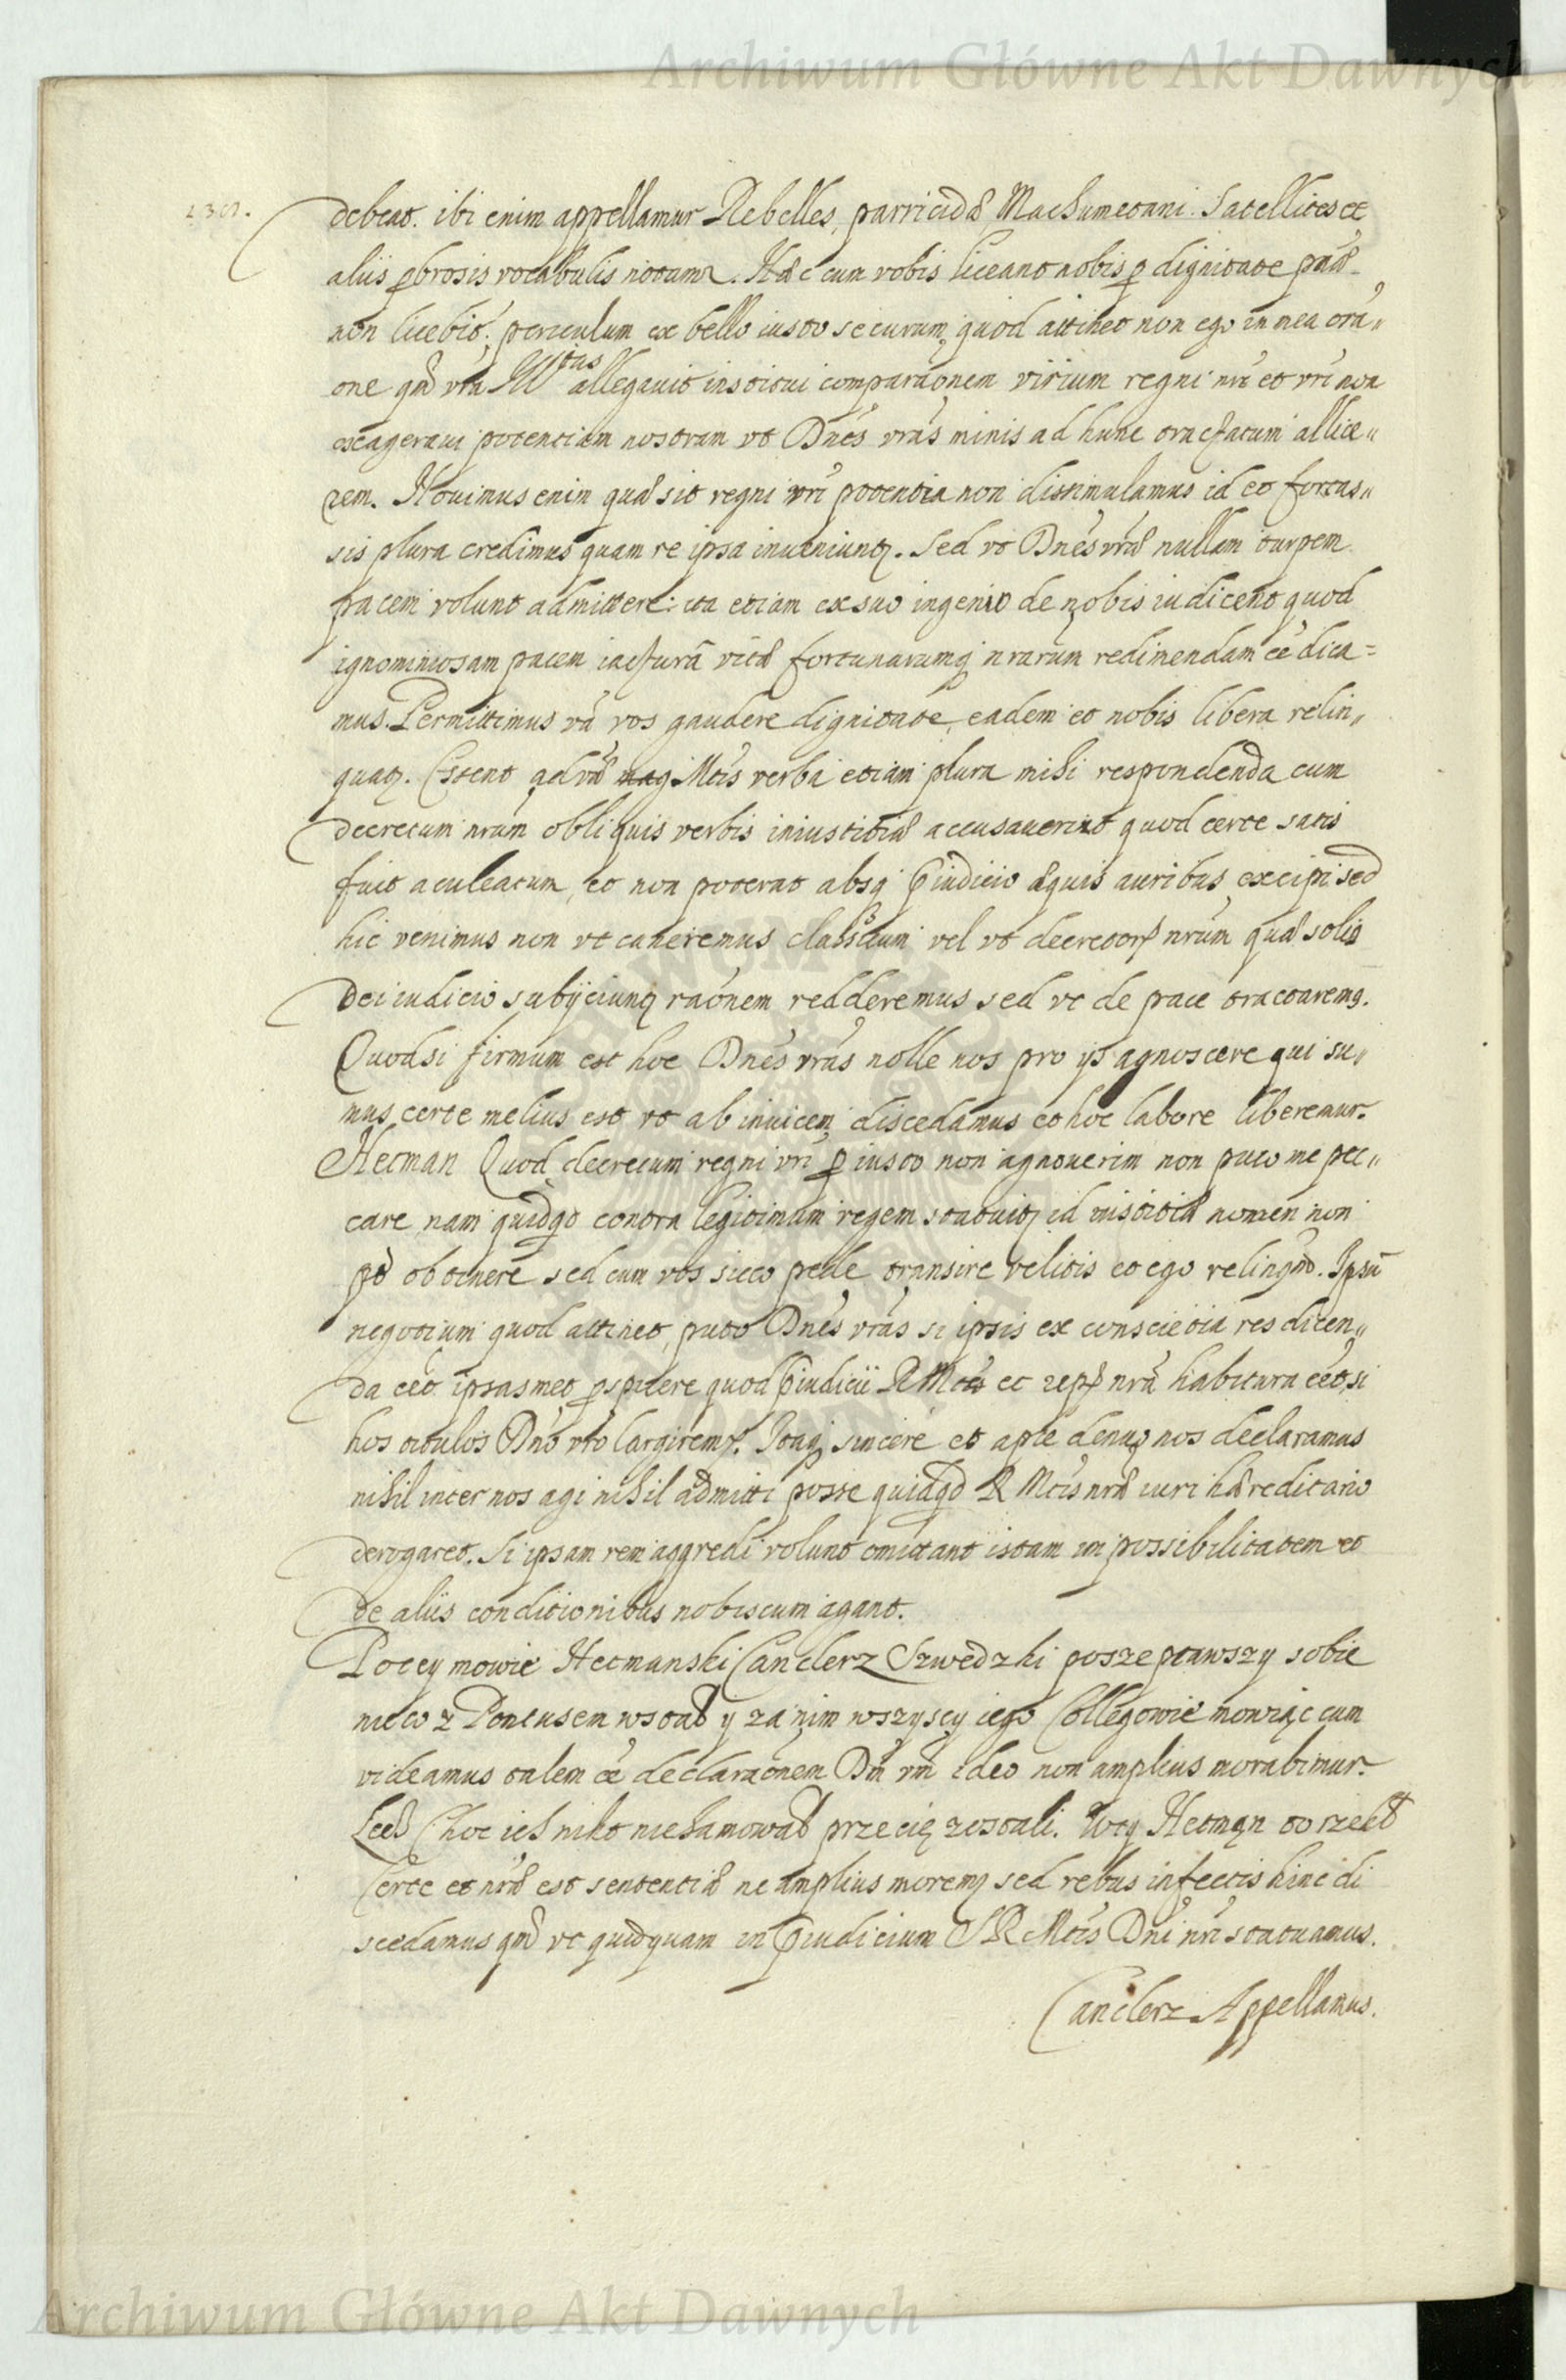 Archiwum Główne Akt Dawnych
debeat. ibi enim appellamur Rebelles, parricidæ Machumetani. Satellites et
aliis probrosis vocabulis notamur. Hæc cum vobis liceant nobis pro dignitate
non licebit; periculum ex bello iusto securum, quod attinet non ego in mea ora„
one qm̃ vrã Mtas allegavit institui comparãonem virium regni nrĩ et vrĩ non
exageravi potentiam nostram vt Dnẽs vrãs minis ad hunc tractatum allice„
rem. Novimus enim quæ sit regni vrĩ potentia non dissimulamus id et fortas„
sis plura credimus quam re ipsa inveniunt. Sed vt Dnẽs vræ̃ nullam turpem
pacem volunt admittere: ita etiam ex suo ingenio de nobis iudicent quod
ignominiosam pacem iacturã vitæ fortunarumq nrarum redimendam eẽ dica=
mus. Permittimus vrã vos gaudere dignitate, eadem et nobis libera relin„
quat. Essent ad vræ̃ Mtis verba etiam plura mihi respondenda cum
decretum nrãm obliquis verbis iniustitiæ accusauerint quod certe satis
fuit aculeatum, et non poterat absq p̃iudicio æquis auribus excipi sed
hic venimus non vt caneremus classicum vel vt decretorũ nrũm quæ solis
Dei iudicio subÿciunt raõnem redderemus sed vt de pace tractaremq.
Quodsi firmum est hoc Dnẽs vrãs nolle nos pro ijs agnoscere qui su„
mus certe melius est vt ab inuicem discedamus et hoc labore liberemur.
Hetman Quod decretum regni vrĩ p iusto non agnouerim non puto me pec„
care, nam quidqd contra legitimum regem statuit, id iustitiæ nomen non
pt obtinere sed cum vos sicco pede transire velitis et ego relinquo. Ipsũ
negotium quod attinet, puto Dnẽs vrãs si ipsis ex consciẽtia res dicen„
da eẽt ipsasmet pspicere quod p̃iudicii R Mtis et reip nrã habitura eẽt, si
hos titulos Dnõ vrõ largiremr. Itaq sincere et apte denuo nos declaramus
nihil inter nos agi nihil admitti posse quidqd R Mtis nræ̃ iuri hæreditario
derogaret. Si ipsam rem aggredi volunt omittant istam impossibilitatem et
de aliis conditionibus nobiscum agant.
Po tey mowie Hetmanski Canclerz Szwedzki poszeptawszy sobie
nieco z Pontusem wstał y za nim wszyscy iego Collegowie mowiąc cum
videamus talem eẽ declaraõnem Dm̃ vrm̃ ideo non amplius morabimur.
Lecz choc ich nikt niehamował przecię zostali. Wtẏ Hetman to rzekł
Certe et nræ̃ est sententiæ ne amplius moremq sed rebus infectis hinc di
scedamus qm̃ vt quidquam in p̃iudicium S R Mtis Dnĩ nrĩ statuamus.
Canclerz Appellamus.
Archiwum Główne Akt Dawnych